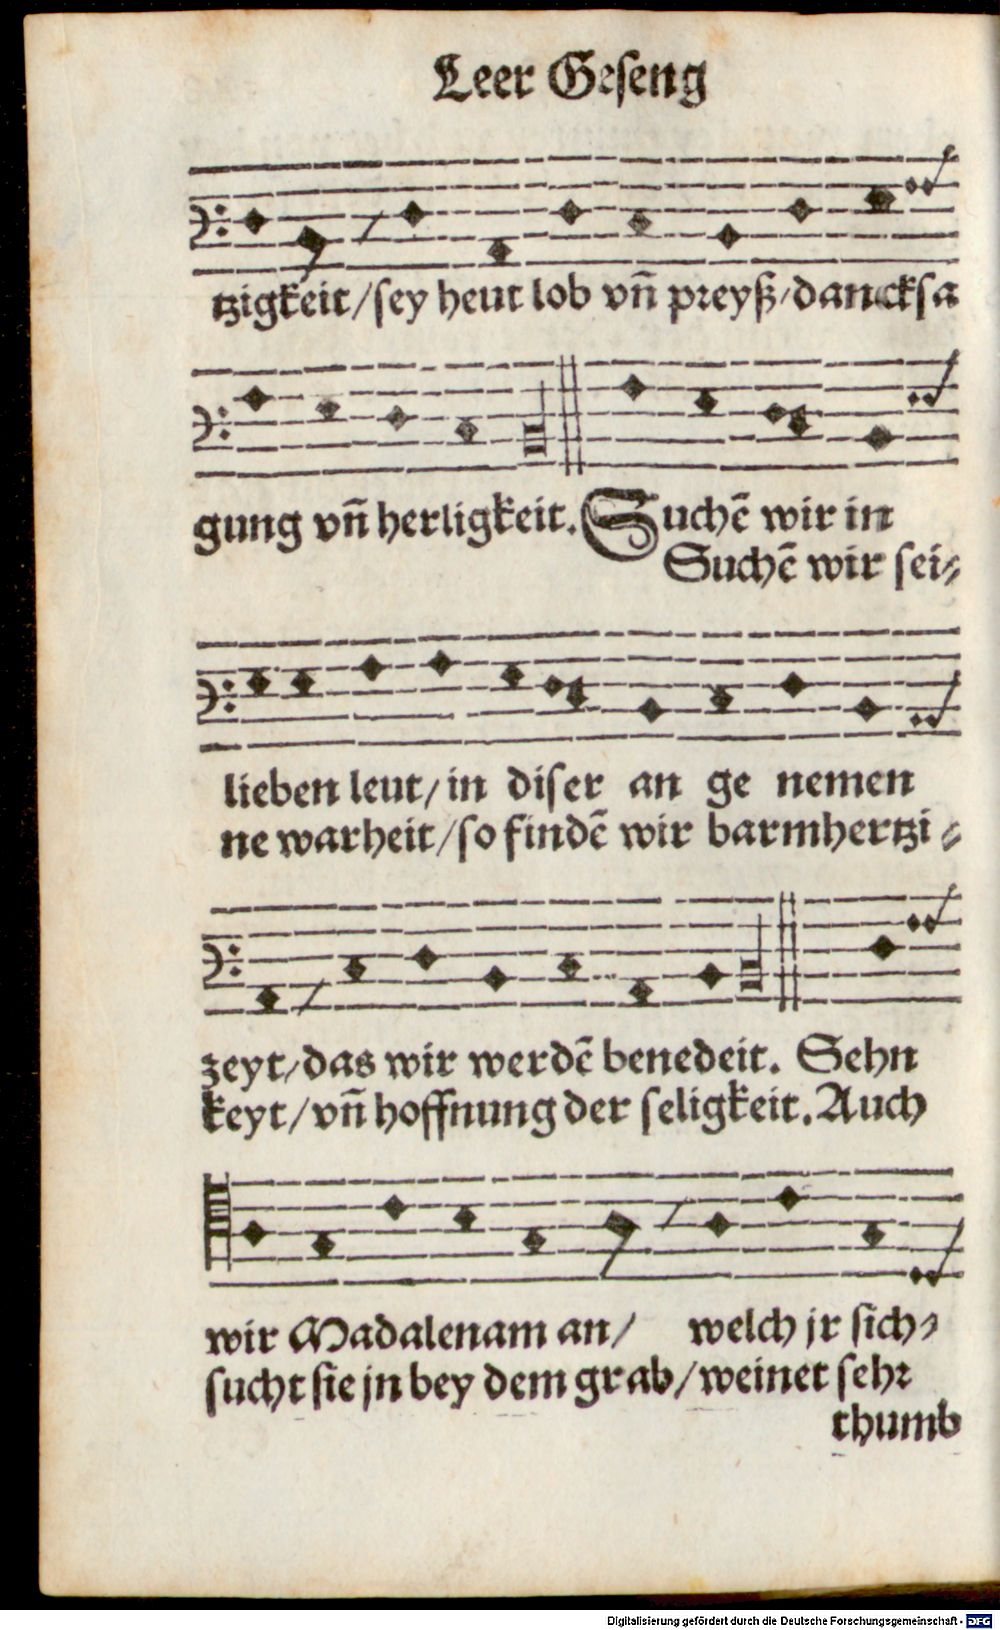 Leer Geseng
tzigkeit/sey heut lob vñ preyß/dancksa
gung vñ herligkeit. Suchē wir in
Suchē wir sei⸗
lieben leut/in diser an ge nemen
ne warheit/so findē wir barmhertzi⸗
zeyt/das wir werdē benedeit. Sehn
keyt/vñ hoffnung der seligkeit. Auch
wir Madalenam an/ welch jr sich⸗
sucht sie jn bey dem grab/weinet sehr
thumb
Digitalisierung gefördert durch die Deutsche Forschungsgemeinschaft - DFG